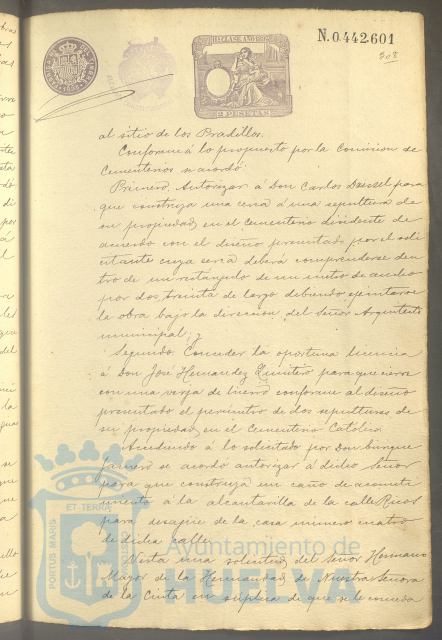 N.0.442.601
11ª CLASE. AÑO 1897
2 PESETAS
al sitio de los Pradillos.
Conforme á lo propuesto por la Comision de
Cementerios se acordó:
Primero. Autorizar á Don Carlos para
que construya una cerca á una sepultura de
su propiedad, en el cementerio disidente de
acuerdo con el diseño presentado por el soli
citante cuya cerca deberá comprenderse den
tro de un rectángulo de un metro de ancho
por dos treinta de largo debiendo ejecutarse
la obra bajo la direccion del Señor Arquitecto
municipal; y
Segundo. Conceder la oportuna licencia
á Don José Hernandez Quintero para que cierre
con una verja de hierro conforme al diseño
presentado el perimetro de dos sepulturas de
su propiedad, en el Cementerio Católico.
Accediendo á lo solicitado por Don
se acordó autorizar á dicho Señor
para que construya un caño de acometi
miento á la alcantarilla de la calle Ricos
para desagüe de la casa número cuatro
de dicha calle.
Vista una solicitud del Señor Hermano
Mayor de la Hermandad de Nuestra Señora
de la Cinta en súplica de que se le conceda
Ayuntamiento de
HUELVA
PORTUS MARIS
ET TERRÆ
CUSTODIA